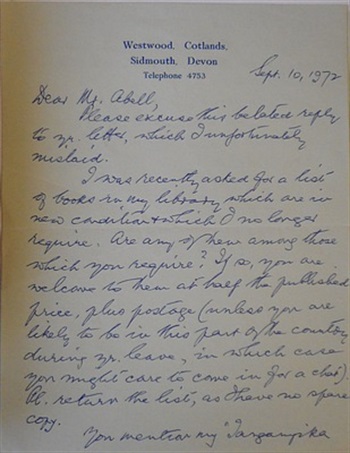 Westwood, Cotlands,
Sidmouth, Devon
Telephone 4753
Sept. 10, 1972
Dear Mr. Abell,
Please excuse this belated reply
to yr. letter, which I unfortunately
mislaid.
I was recently asked for a list
of books in my library which are in
new condition & which I no longer
require. Are any of them among those
which you require? If so, you are
welcome to them at half the published
price, plus postage (unless you are
likely to be in this part of the country
during yr. leave, in which case
you might care to come in for a chat).
Pl. return the list, as I have no spare
copy.
You mention my "Tanganyika